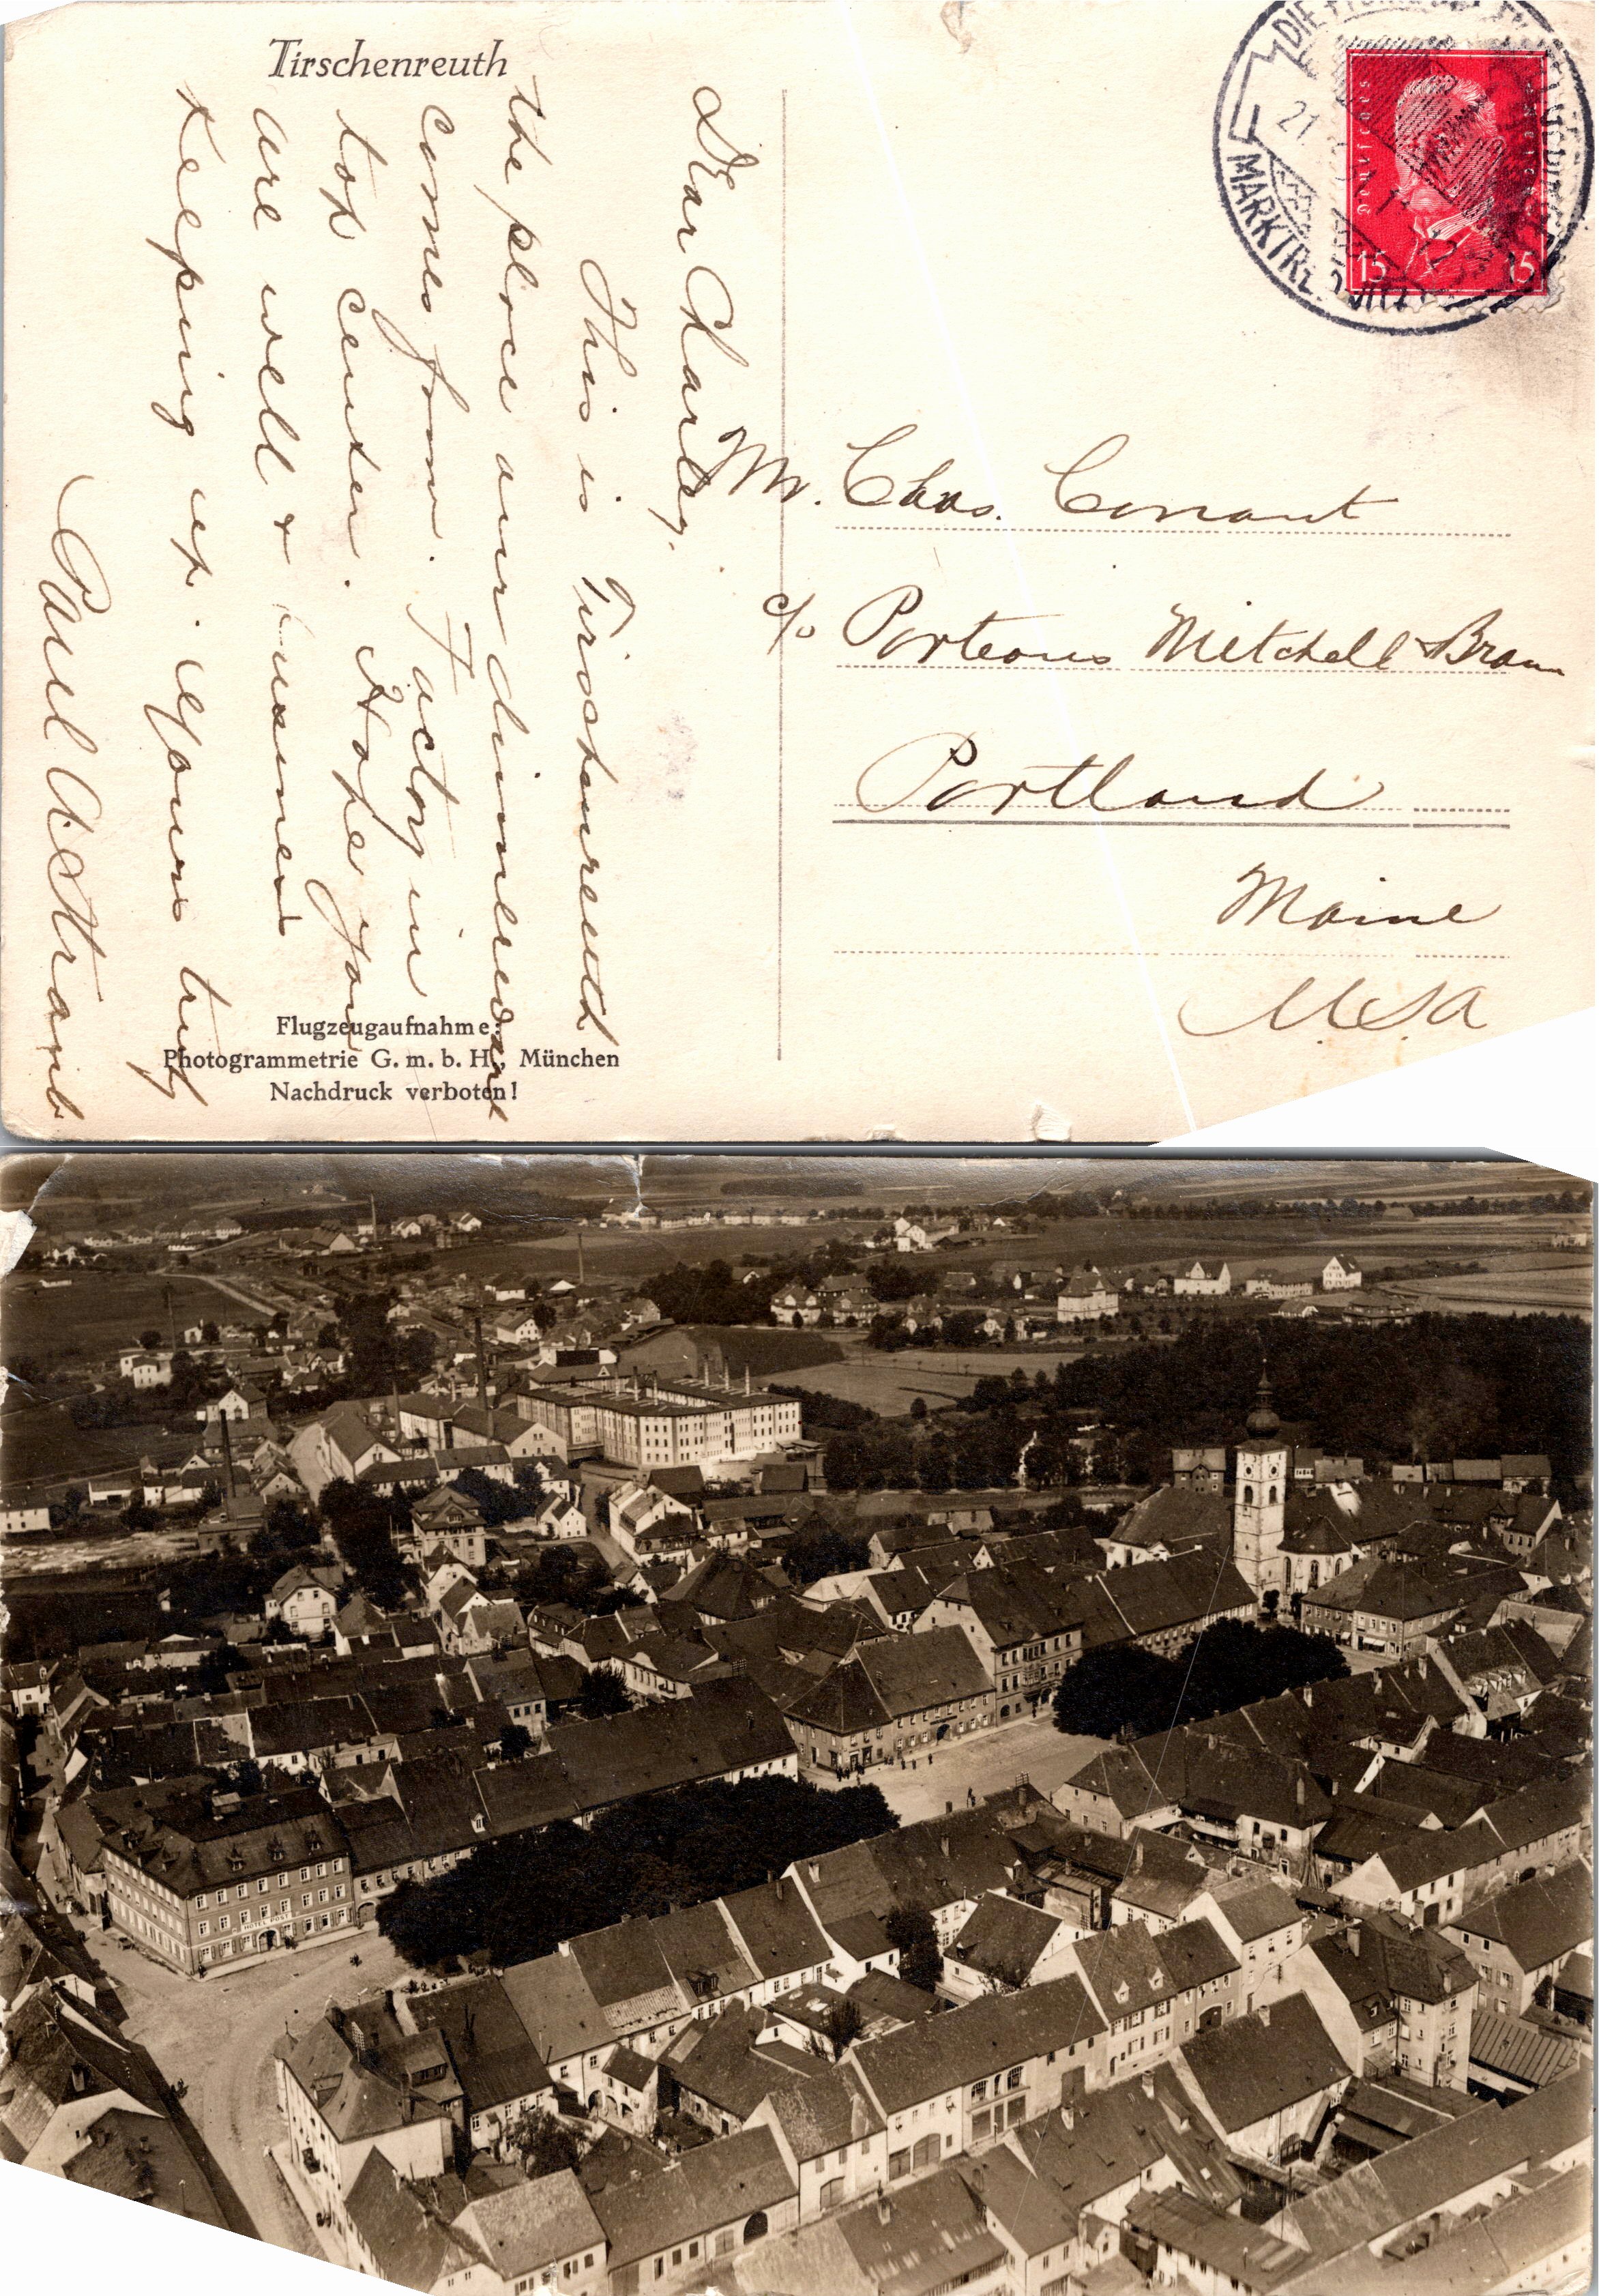 Tirschenreuth
Dear Charley.
This is Tirschenreuth
the place our dinnerware
comes from. Factory in
top center. Hope you
are well & business
keeping up. Yours truly
Paul A. Straub
Flugzeugaufnahme:
Photogrammetrie G. m. b. H., München
Nachdruck verboten!
Deutsches Reich
15 15
DIE
21.
MARKTRE
Mr. Chas. Conant
c/o Porteous Mitchell & Braun
Portland
Maine
USA
HOTEL POST